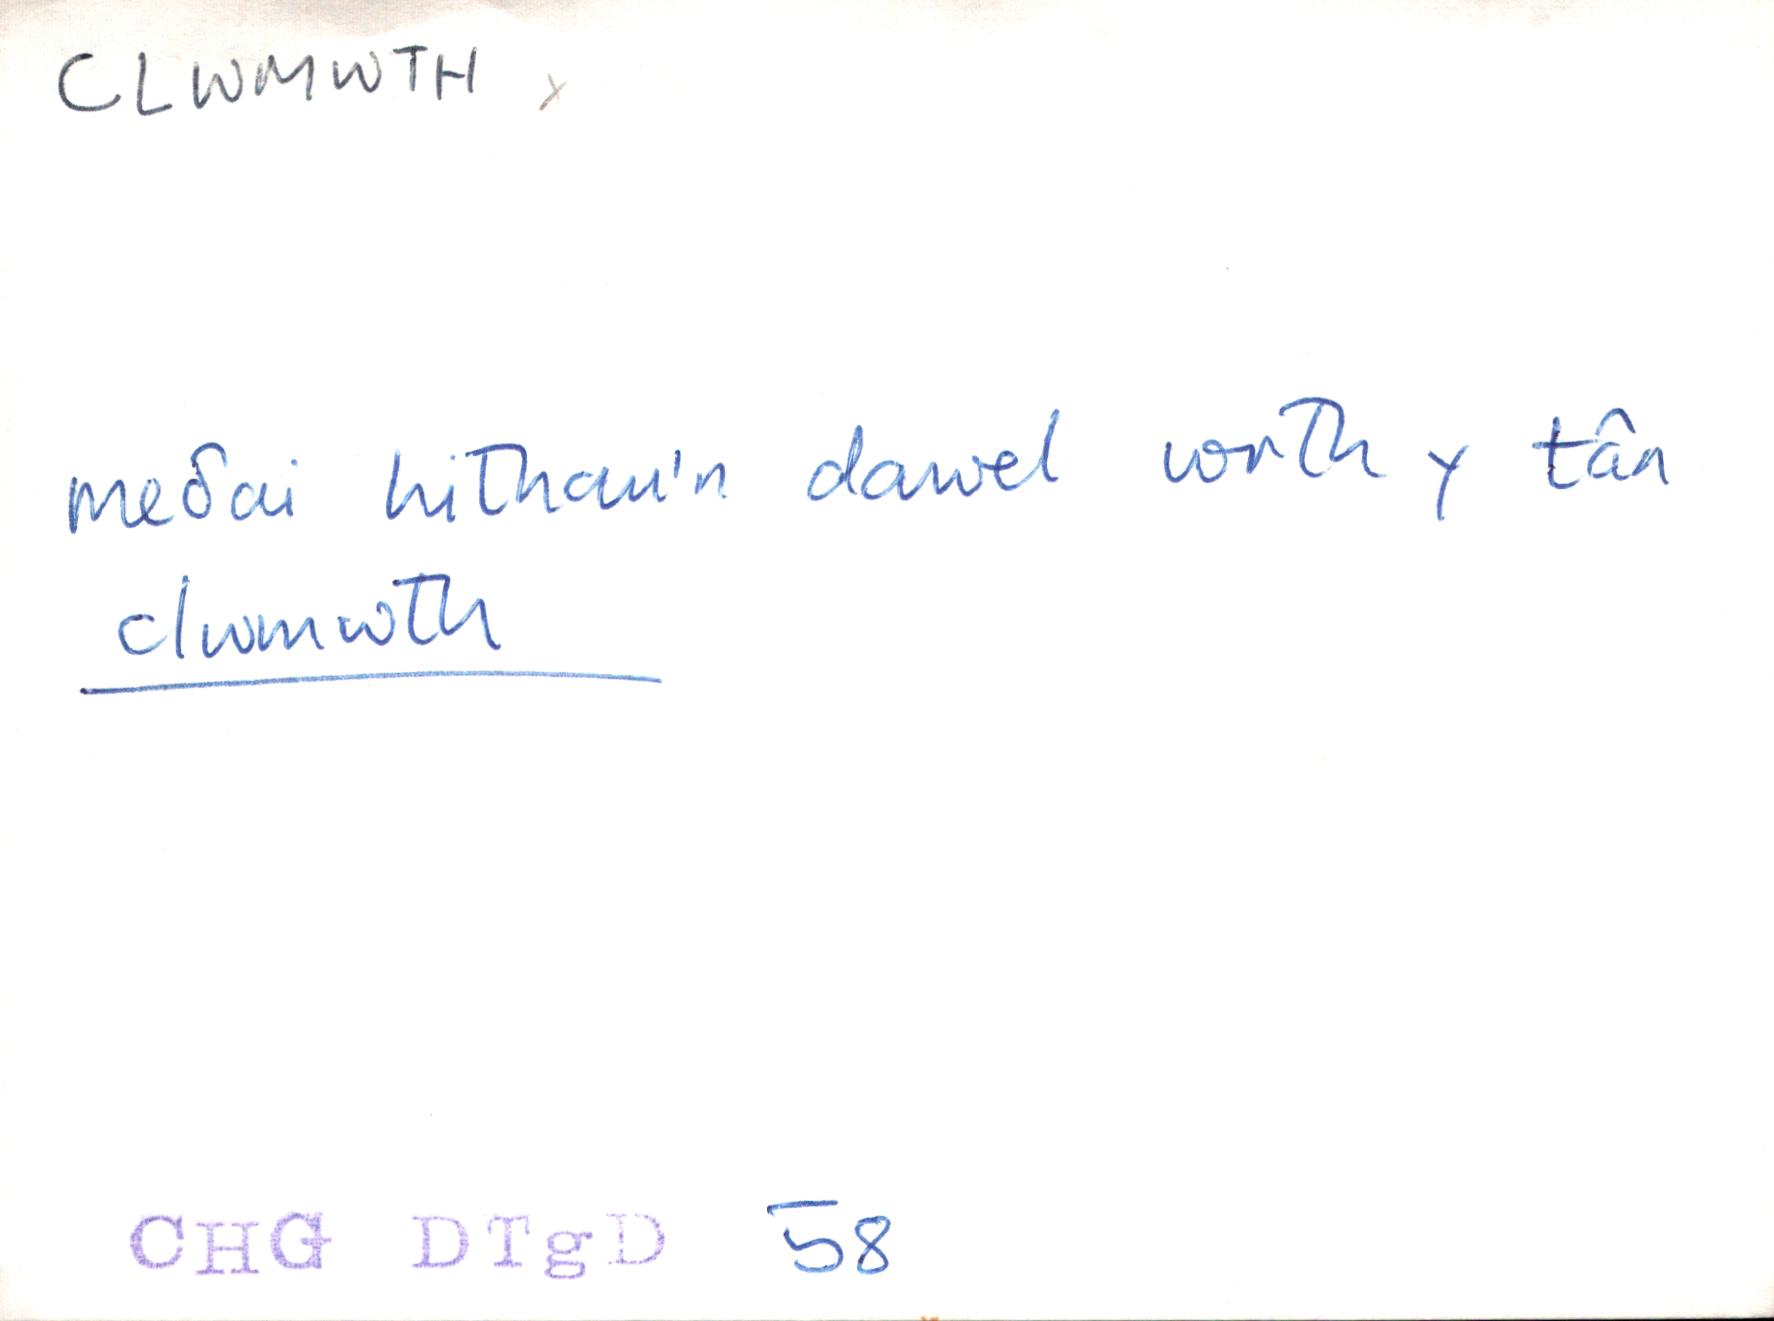 CLWMWTH x
meδai hithau'n dawel wrth y tân
clwmwth
CHG DTgD 58